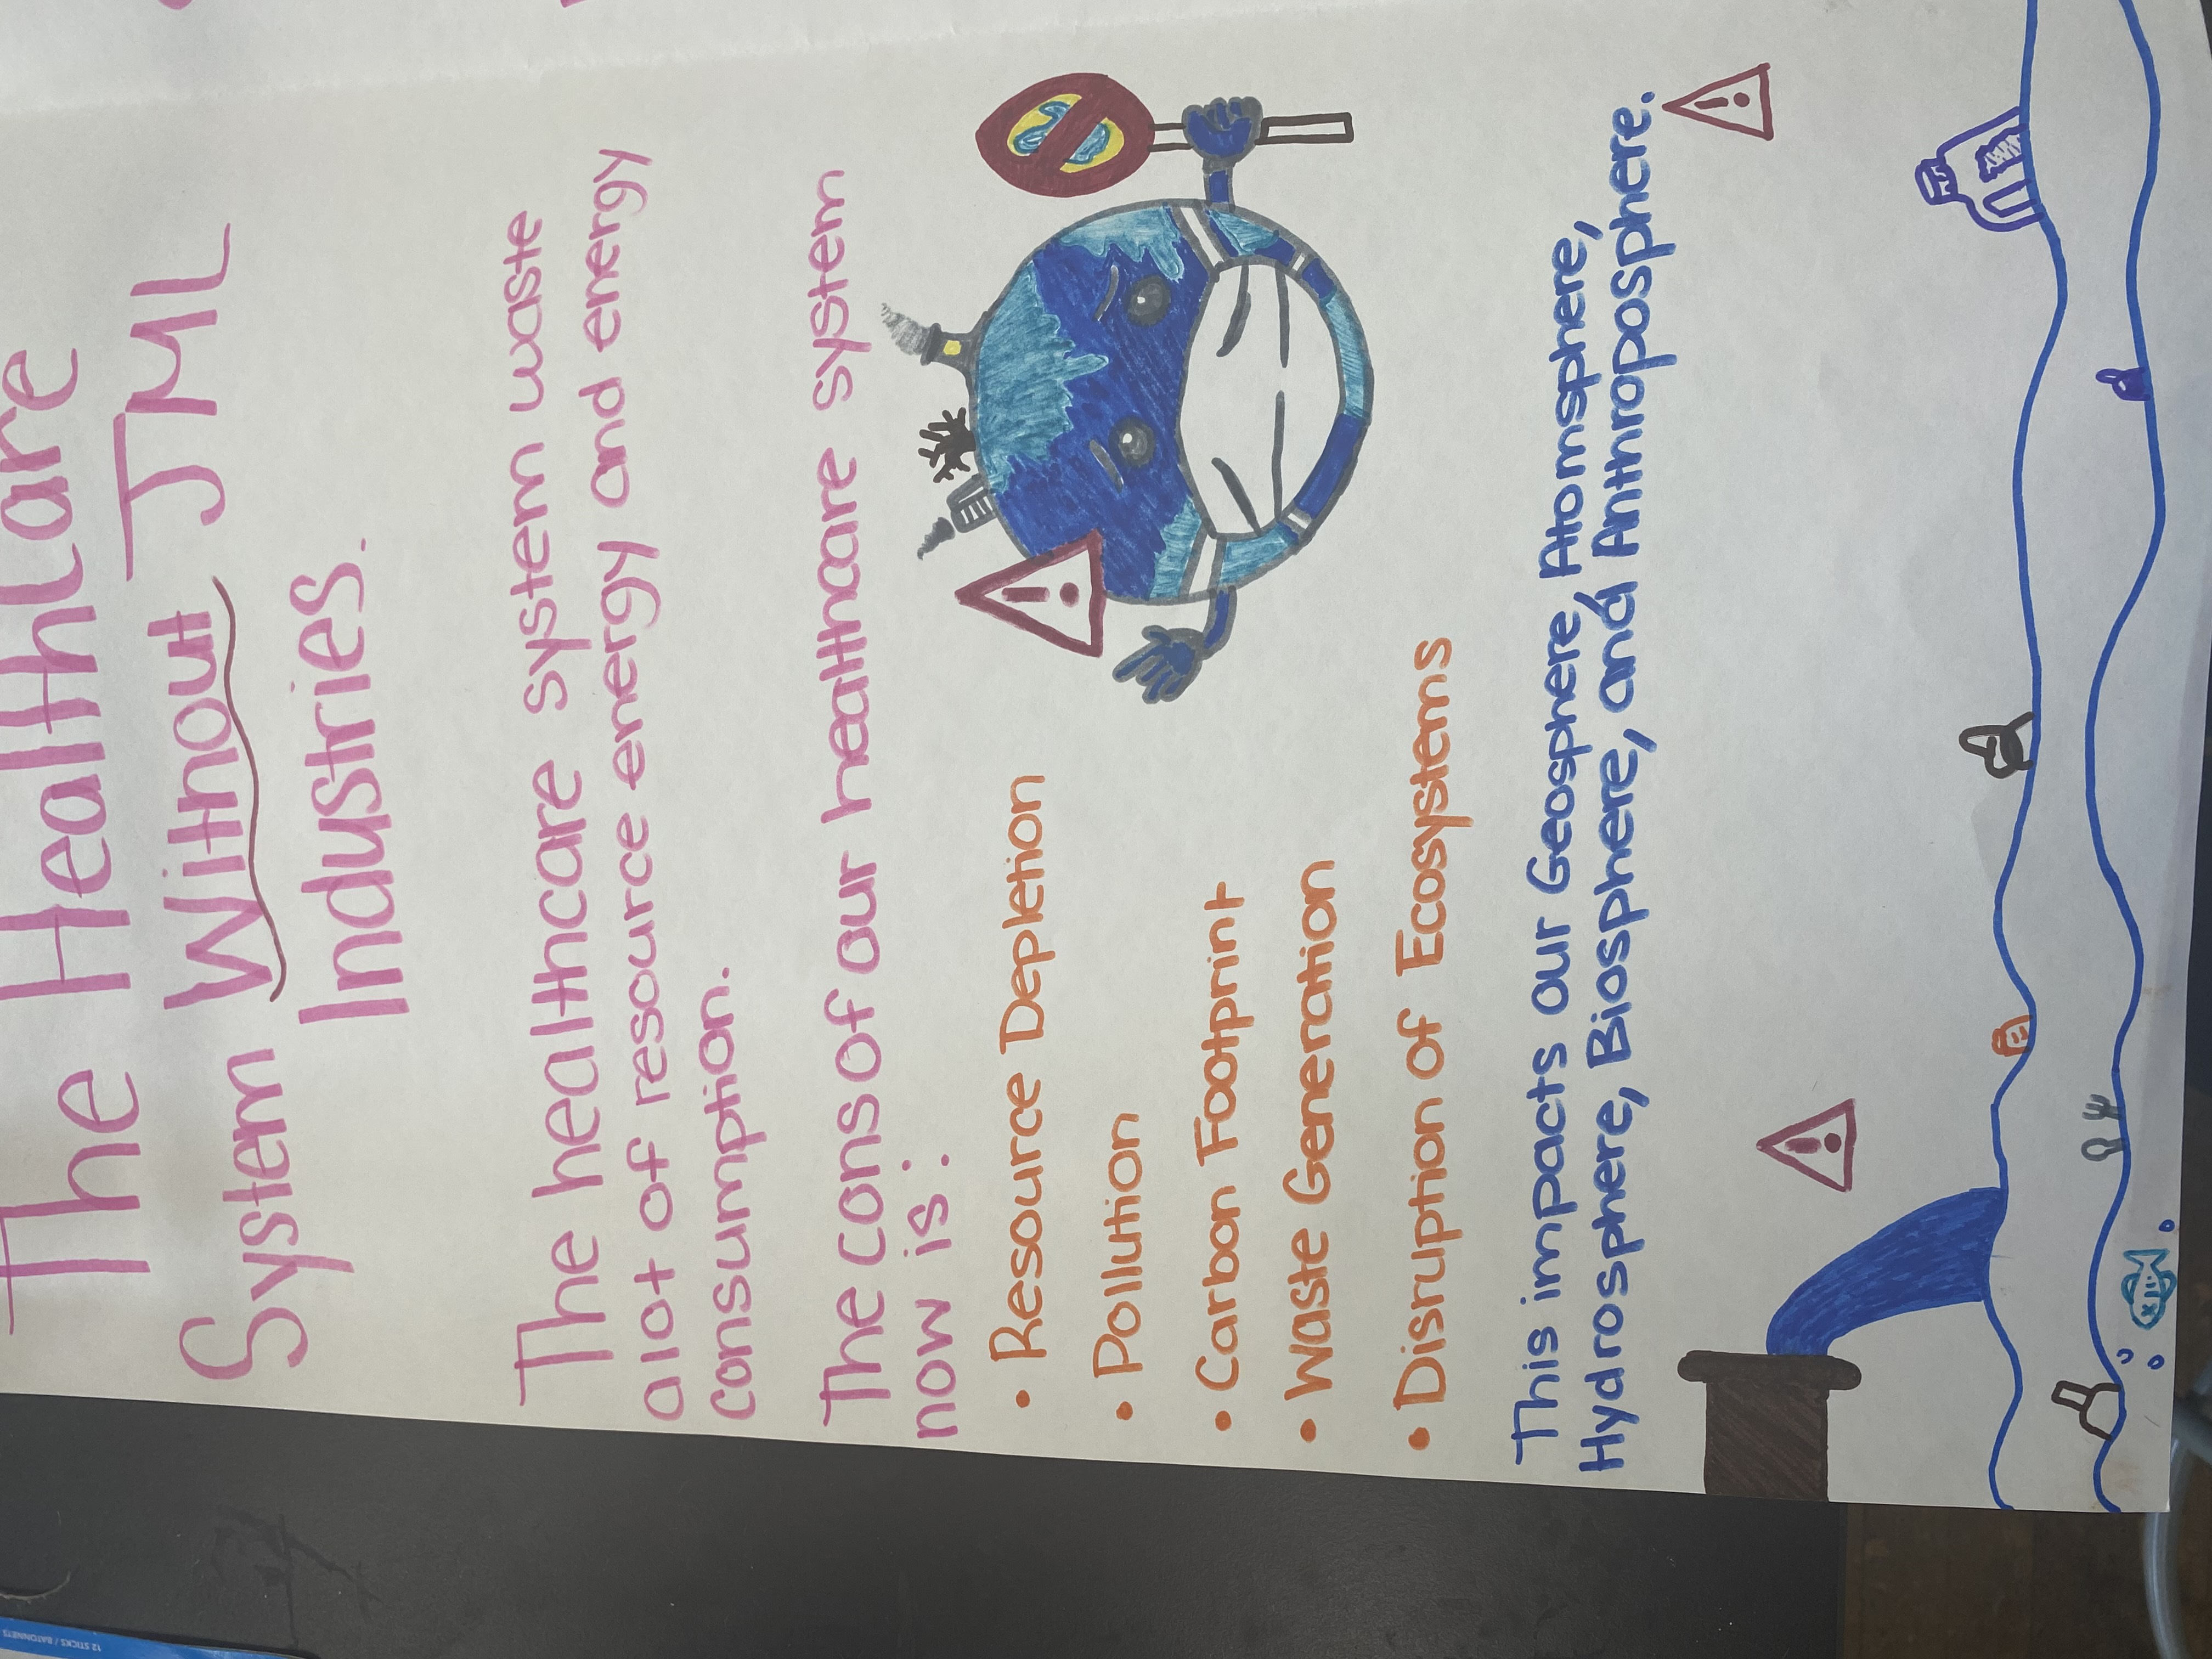 The HealthCare
System Without JML
Industries.
The healthcare system waste
alot of resource energy and energy
consumption.
The cons of our healthcare system
now is:
• Resource Depletion
• Pollution
• Carbon Footprint
• Waste Generation
• Disruption of Ecosystems
This impacts our Geosphere, Atomsphere,
Hydrosphere, Biosphere, and Anthroposphere.
12 STICKS / BATONNETS